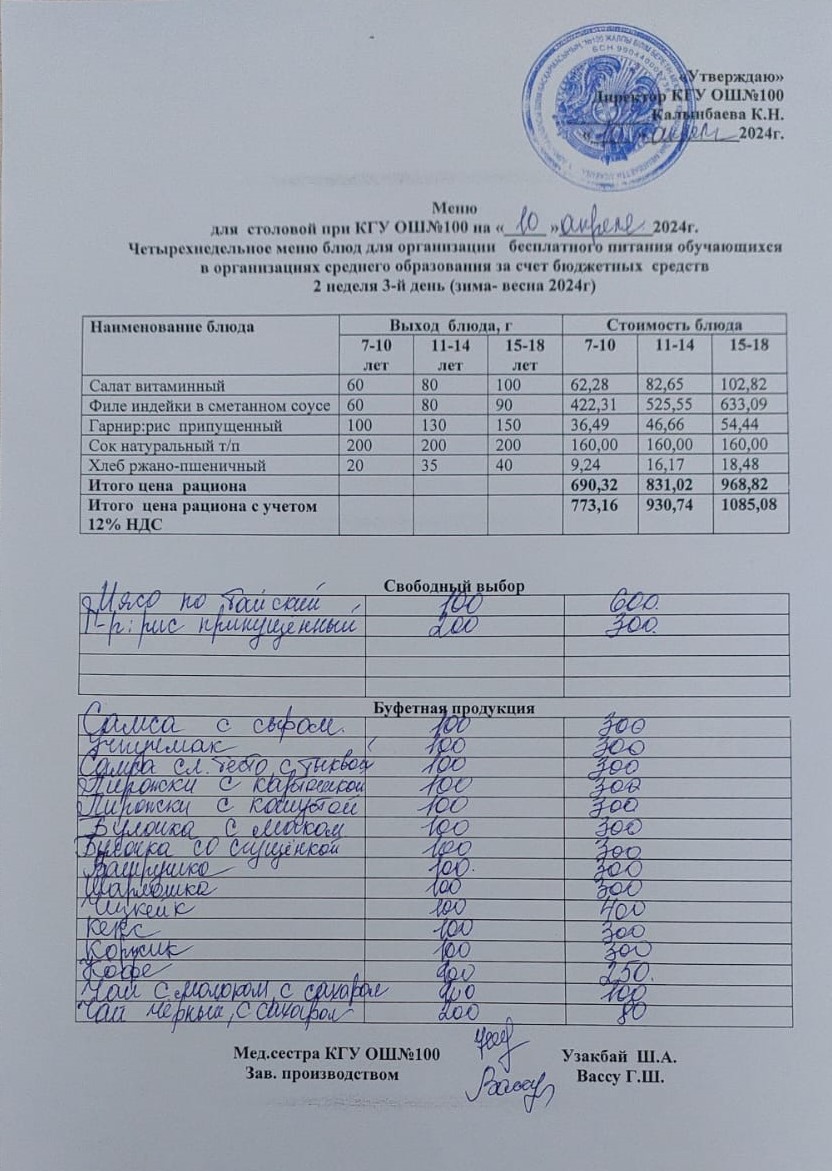 «Утверждаю»
Директор КГУ ОШ№100
Калынбаева К.Н.
« 10 » апреля 2024г.
Меню
для столовой при КГУ ОШ№100 на « 10 » апреле 2024г.
Четырехнедельное меню блюд для организации бесплатного питания обучающихся
в организациях среднего образования за счет бюджетных средств
2 неделя 3-й день (зима- весна 2024г)
Наименование блюда Выход блюда, г Стоимость блюда
7-10 лет 11-14 лет 15-18 лет 7-10 11-14 15-18
Салат витаминный 60 80 100 62,28 82,65 102,82
Филе индейки в сметанном соусе 60 80 90 422,31 525,55 633,09
Гарнир:рис припущенный 100 130 150 36,49 46,66 54,44
Сок натуральный т/п 200 200 200 160,00 160,00 160,00
Хлеб ржано-пшеничный 20 35 40 9,24 16,17 18,48
Итого цена рациона 690,32 831,02 968,82
Итого цена рациона с учетом 773,16 930,74 1085,08
12% НДС
Свободный выбор
Мясо по тайский 100 600.
Г-р: рис припущенный 200 300.
Буфетная продукция
Самса с сыром. 100 300
Учпучмак 100 300
Самса сл. тесто, с тыквой 100 300
Пирожки с картошкой 100 300
Пирожки с капустой 100 300
Булочка с маком 100 300
Булочка со сгущёнкой 100 300
100. 300
Шарлотка 100 300
Чизкейк 100 400
Кекс 100 300
Коржик 100 300
Кофе 200 250.
Чай с молоком, с сахаром 200 100
Чай черный, с сахаром 200 80
Мед.сестра КГУ ОШ№100 Узакбай Ш.А.
Зав. производством Вассу Вассу Г.Ш.